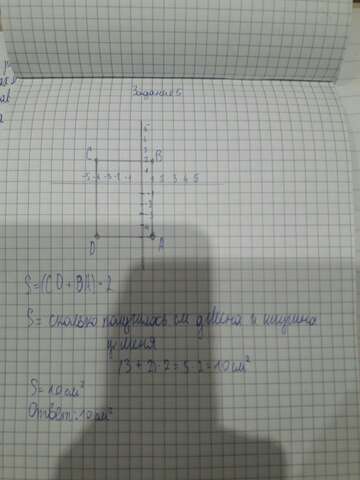 Задание 5
C B
-5 -4 -3 -2 -1 1 2 3 4 5
D A
S=(CD+BA)·2
S= сколько получилось см длина и ширина
у меня
(3+2)·2=5·2=10см²
S=10см²
Ответ:10см²